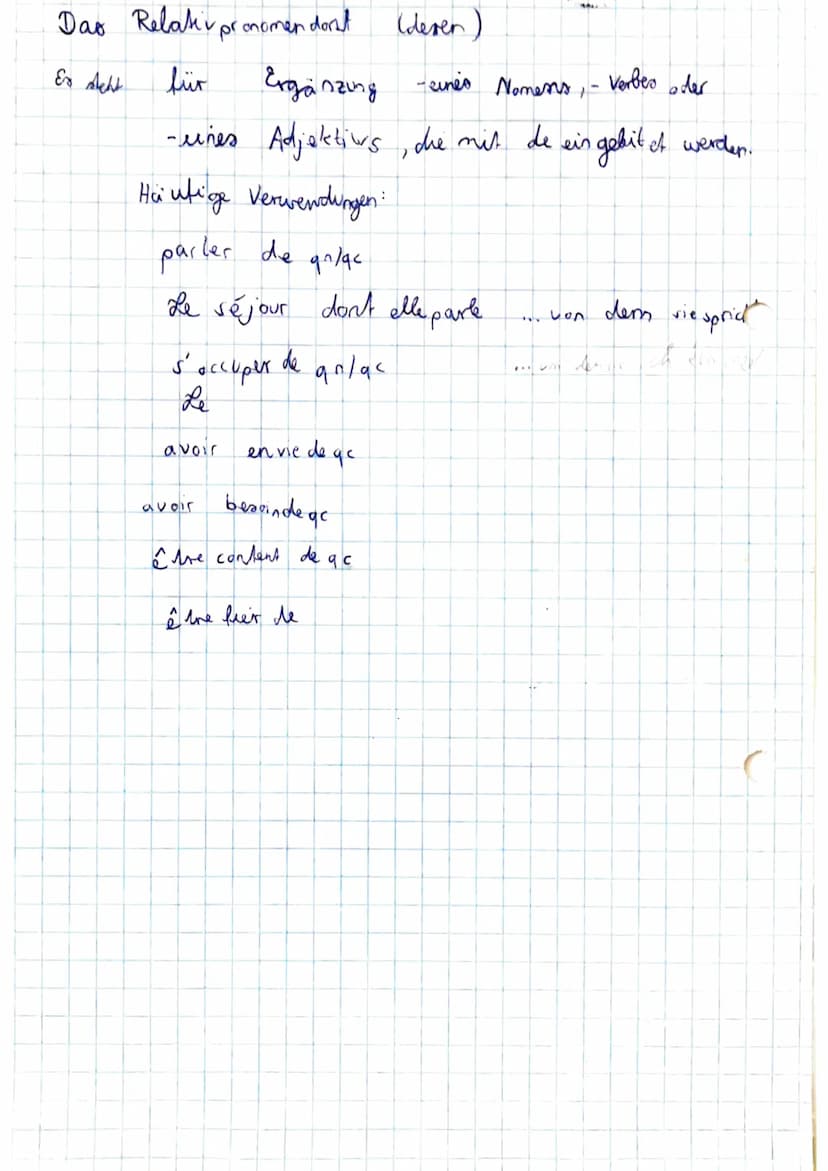 Das Relativpronomen dont (deren)
Es steht für Ergänzung - eines Nomens, - Verbes oder
- eines Adjektivs, die mit de eingeleitet werden.
Häufige Verwendungen:
parler de qn/qc
Le séjour dont elle parle ... von dem sie spricht
s'occuper de qn/qc
Le
avoir envie de qc
avoir besoin de qc
être content de qc
être fier de